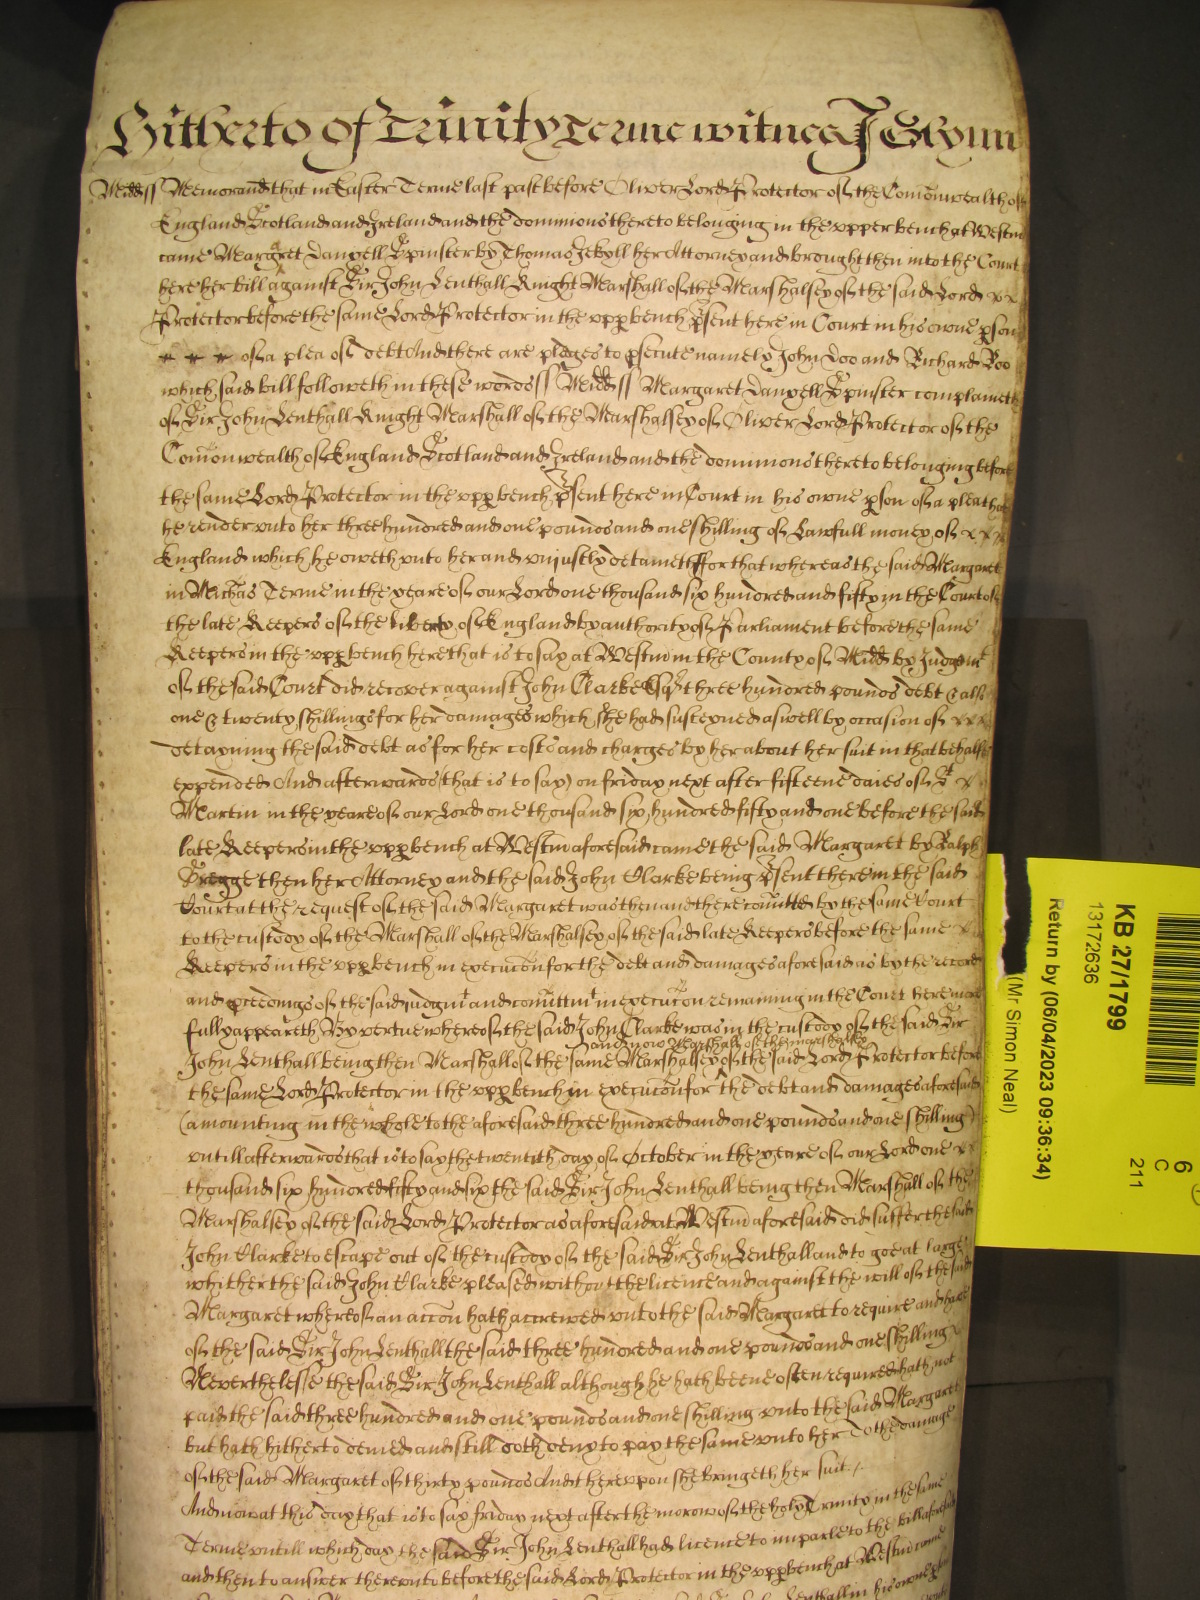 Hitherto of Trinity Terme witnes J Glynn
Midd ss Memorand that in Easter Terme last past before Oliver Lord Protector of the Comonwealth of
England Scotland and Ireland and the dominions thereto belonging in the upper bench at Westm
came Margaret Danyell Spinster by Thomas Jekyll her Attorney and brought then into the Court
here her bill against Sir John Lenthall Knight Marshall of the Marshalsey of the said Lord x x
Protector before the same Lord Protector in the upp bench psent here in Court in his owne pson
of a plea of debt And there are pledges to psecute namely John Doo and Richard Roo
which said bill followeth in these words ss Midd ss Margaret Danyell Spinster complaineth
of Sir John Lenthall Knight Marshall of the Marshalsey of Oliver Lord Protector of the
Comonwealth of England Scotland and Ireland and the dominions thereto belonging before
the same Lord Protector in the upp bench psent here in Court in his owne pson of a plea that
he render unto her three hundred and one pounds and one shilling of Lawfull money of x x x
England which he oweth unto her and uniustly detaineth ffor that whereas the said Margaret
in Michas Terme in the yeare of our Lord one thousand six hundred and fifty in the Court of
the late Keepers of the liberty of England by authority of Parliament before the same
Keepers in the upp bench here that is to say at Westm in the County of Midd by Judgmt
of the said Court did recover against John Clarke Esqr three hundred pounds debt & also
one & twenty shillings for her damages which she had susteyned aswell by occasion of x x x
detayning the said debt as for her costs and charges by her about her suit in that behalfe
expended And afterwards that is to say on friday next after fifteene daies of St x
Martin in the yeare of our Lord one thousand six hundred fifty and one before the said
late Keepers in the upp bench at Westm aforesaid came the said Margaret by Ralph
Gregge then her Attorney and the said John Clarke being psent there in the said
Court at the request of the said Margaret was then and there comitted by the same Court
to the custody of the Marshall of the Marshalsey of the said late Keepers before the same x
Keepers in the upp bench in execucon for the debt and damages aforesaid as by the record
and pceedings of the said iudgmt and comittmt in execucon remaining in the Court here more
fully appeareth By vertue whereof the said John Clarke was in the custody of the said Sir
and now Marshall of the marshalsey
John Lenthall being then Marshall of the same Marshalsey of the said Lord Protector before
the same Lord Protector in the upp bench in execucon for the debt and damages aforesaid
(amounting in the whole to the aforesaid three hundred and one pounds and one shilling)
untill afterwards that is to say the twentith day of October in the yeare of our Lord one x x
thousand six hundred fifty and six the said Sir John Lenthall being then Marshall of the
Marshalsey of the said Lord Protector as aforesaid at Westm aforesaid did suffer the said
John Clarke to escape out of the custody of the said Sir John Lenthall and to goe at large
whither the said John Clarke pleased without the licence and against the will of the said
Margaret whereof an accon hath accrewed unto the said Margaret to require and have
of the said Sir John Lenthall the said three hundred and one pounds and one shilling x
Neverthelesse the said Sir John Lenthall although he hath beene often required hath not
paid the said three hundred and one pounds and one shilling unto the said Margaret
but hath hitherto denied and still doth deny to pay the same unto her To the damage
of the said Margaret of thirty pounds And thereupon she bringeth her suit
And now at this day that is to say friday next after the morow of the holy Trinity in the same
Terme untill which day the said Sir John Lenthall had licence to imparle to the bill aforesaid
and then to answer thereunto before the said Lord Protector in the upp bench at Westm come
Lenthall in his owne pson
KB 27/1799
13172636
Return by (06/04/2023 09:36:34)
(Mr Simon Neal)
6
C
211